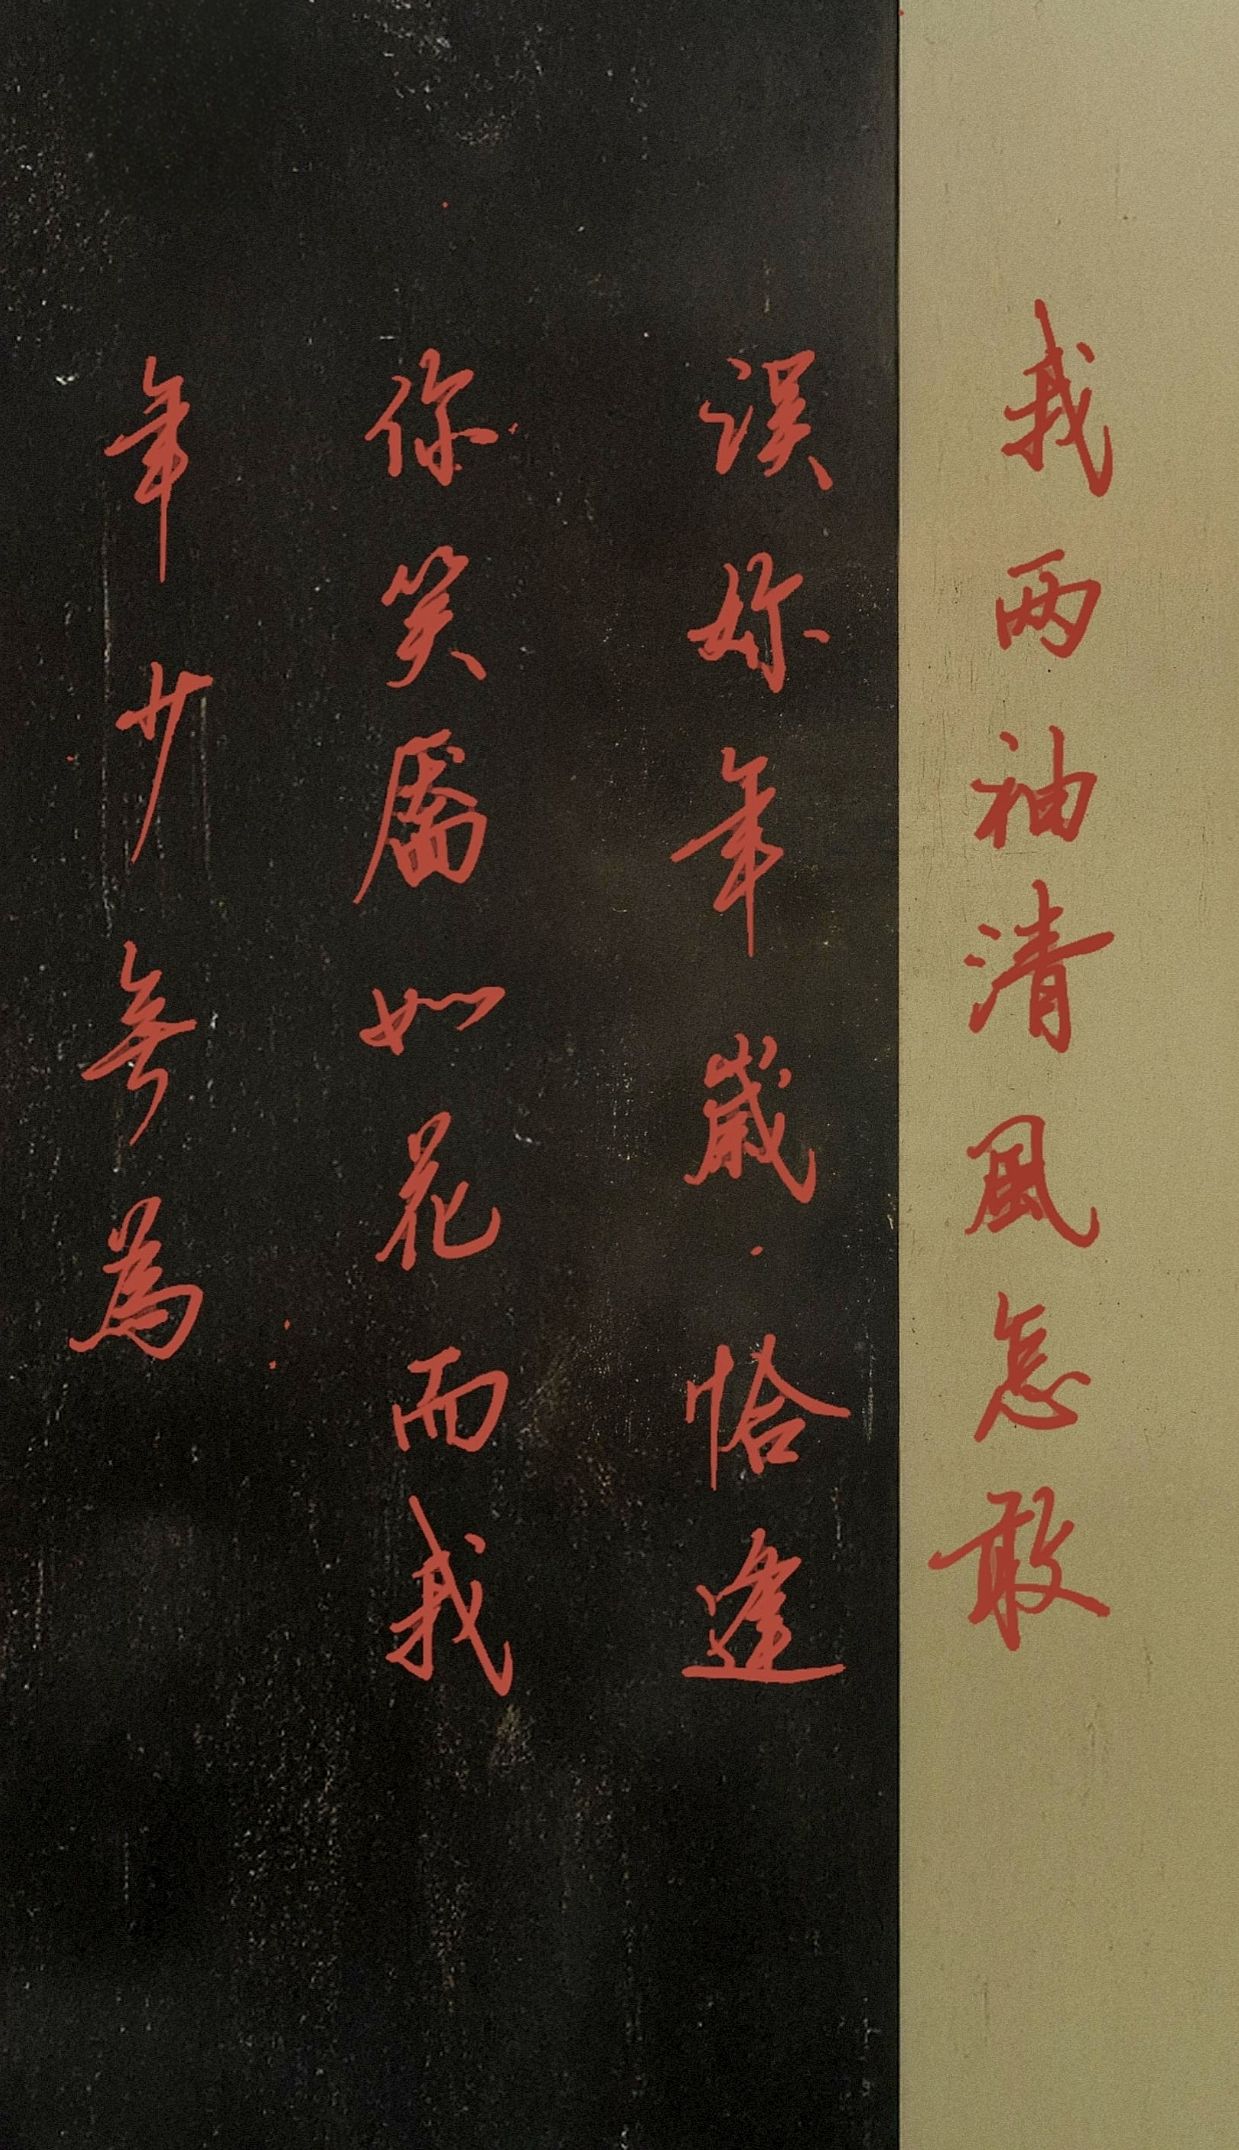 我两袖清风怎敢
误妳年歲恰逢
你笑靥如花而我
年少無為